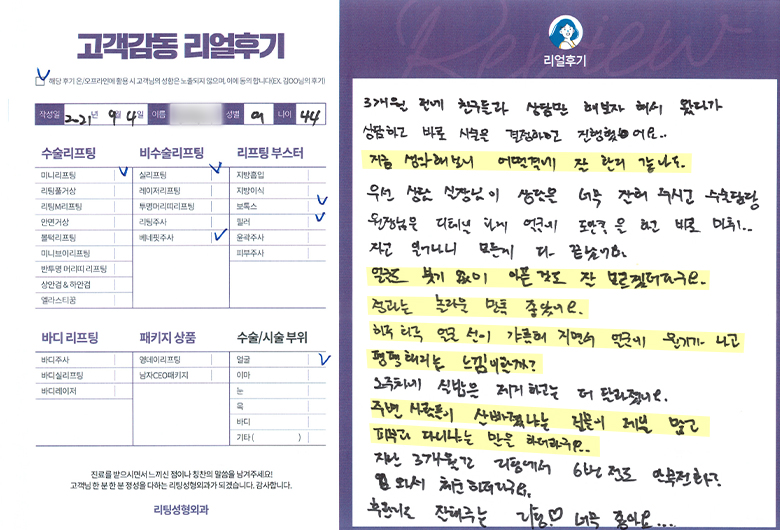 고객감동 리얼후기
해당 후기 온/오프라인에 활용 시 고객님의 성함은 노출되지 않으며, 이에 동의 합니다(EX. 김OO님의 후기)
작성일 2021년 9월 4일 이름 성별 여 나이 44
수술리프팅
미니리프팅
리팅풀거상
리팅M리프팅
안면거상
볼턱리프팅
미니브이리프팅
반투명 머리띠 리프팅
상안검 & 하안검
엘라스티꿈
비수술리프팅
실리프팅
레이저리프팅
투명머리띠리프팅
리팅주사
베네핏주사
리프팅 부스터
지방흡입
지방이식
보톡스
필러
윤곽주사
피부주사
바디 리프팅
바디주사
바디실리프팅
바디레이저
패키지 상품
영데이리프팅
남자CEO패키지
수술/시술 부위
얼굴
이마
눈
목
바디
기타 ( )
진료를 받으시면서 느끼신 점이나 칭찬의 말씀을 남겨주세요!
고객님 한 분 한 분 정성을 다하는 리팅성형외과가 되겠습니다. 감사합니다.
리팅성형외과
Review
리얼후기
3개월 전에 친구들과 상담만 해보자 해서 왔다가
상담하고 바로 시술을 결정하고 진행했어요..
지금 생각해보니 어떤면에 잘 한거 같아요.
우선 상담 실장님이 상담을 너무 잘해 주시고 수술담당
원장님은 디테일 하게 얼굴에 도안을 하고 바로 마취..
자고 일어나니 모든게 다 끝났어요.
얼굴도 붓기 없이 아픈것도 잘 모르겠더라구요.
결과는 놀라운 만큼 좋았어요.
하루 하루 얼굴 선이 갸름해 지면서 얼굴에 윤기가 나고
팽팽해지는 느낌이랄까?
2주차에 실밥을 제거 하고는 더 달라졌어요.
주변 사람들이 살빠졌냐는 질문이 제일 많고
피부과 다니냐는 말을 하더라구요..
지난 3개월간 리팅에서 6번 정도
와서 체크 하더라구요.
리팅♡ 너무 좋아요...